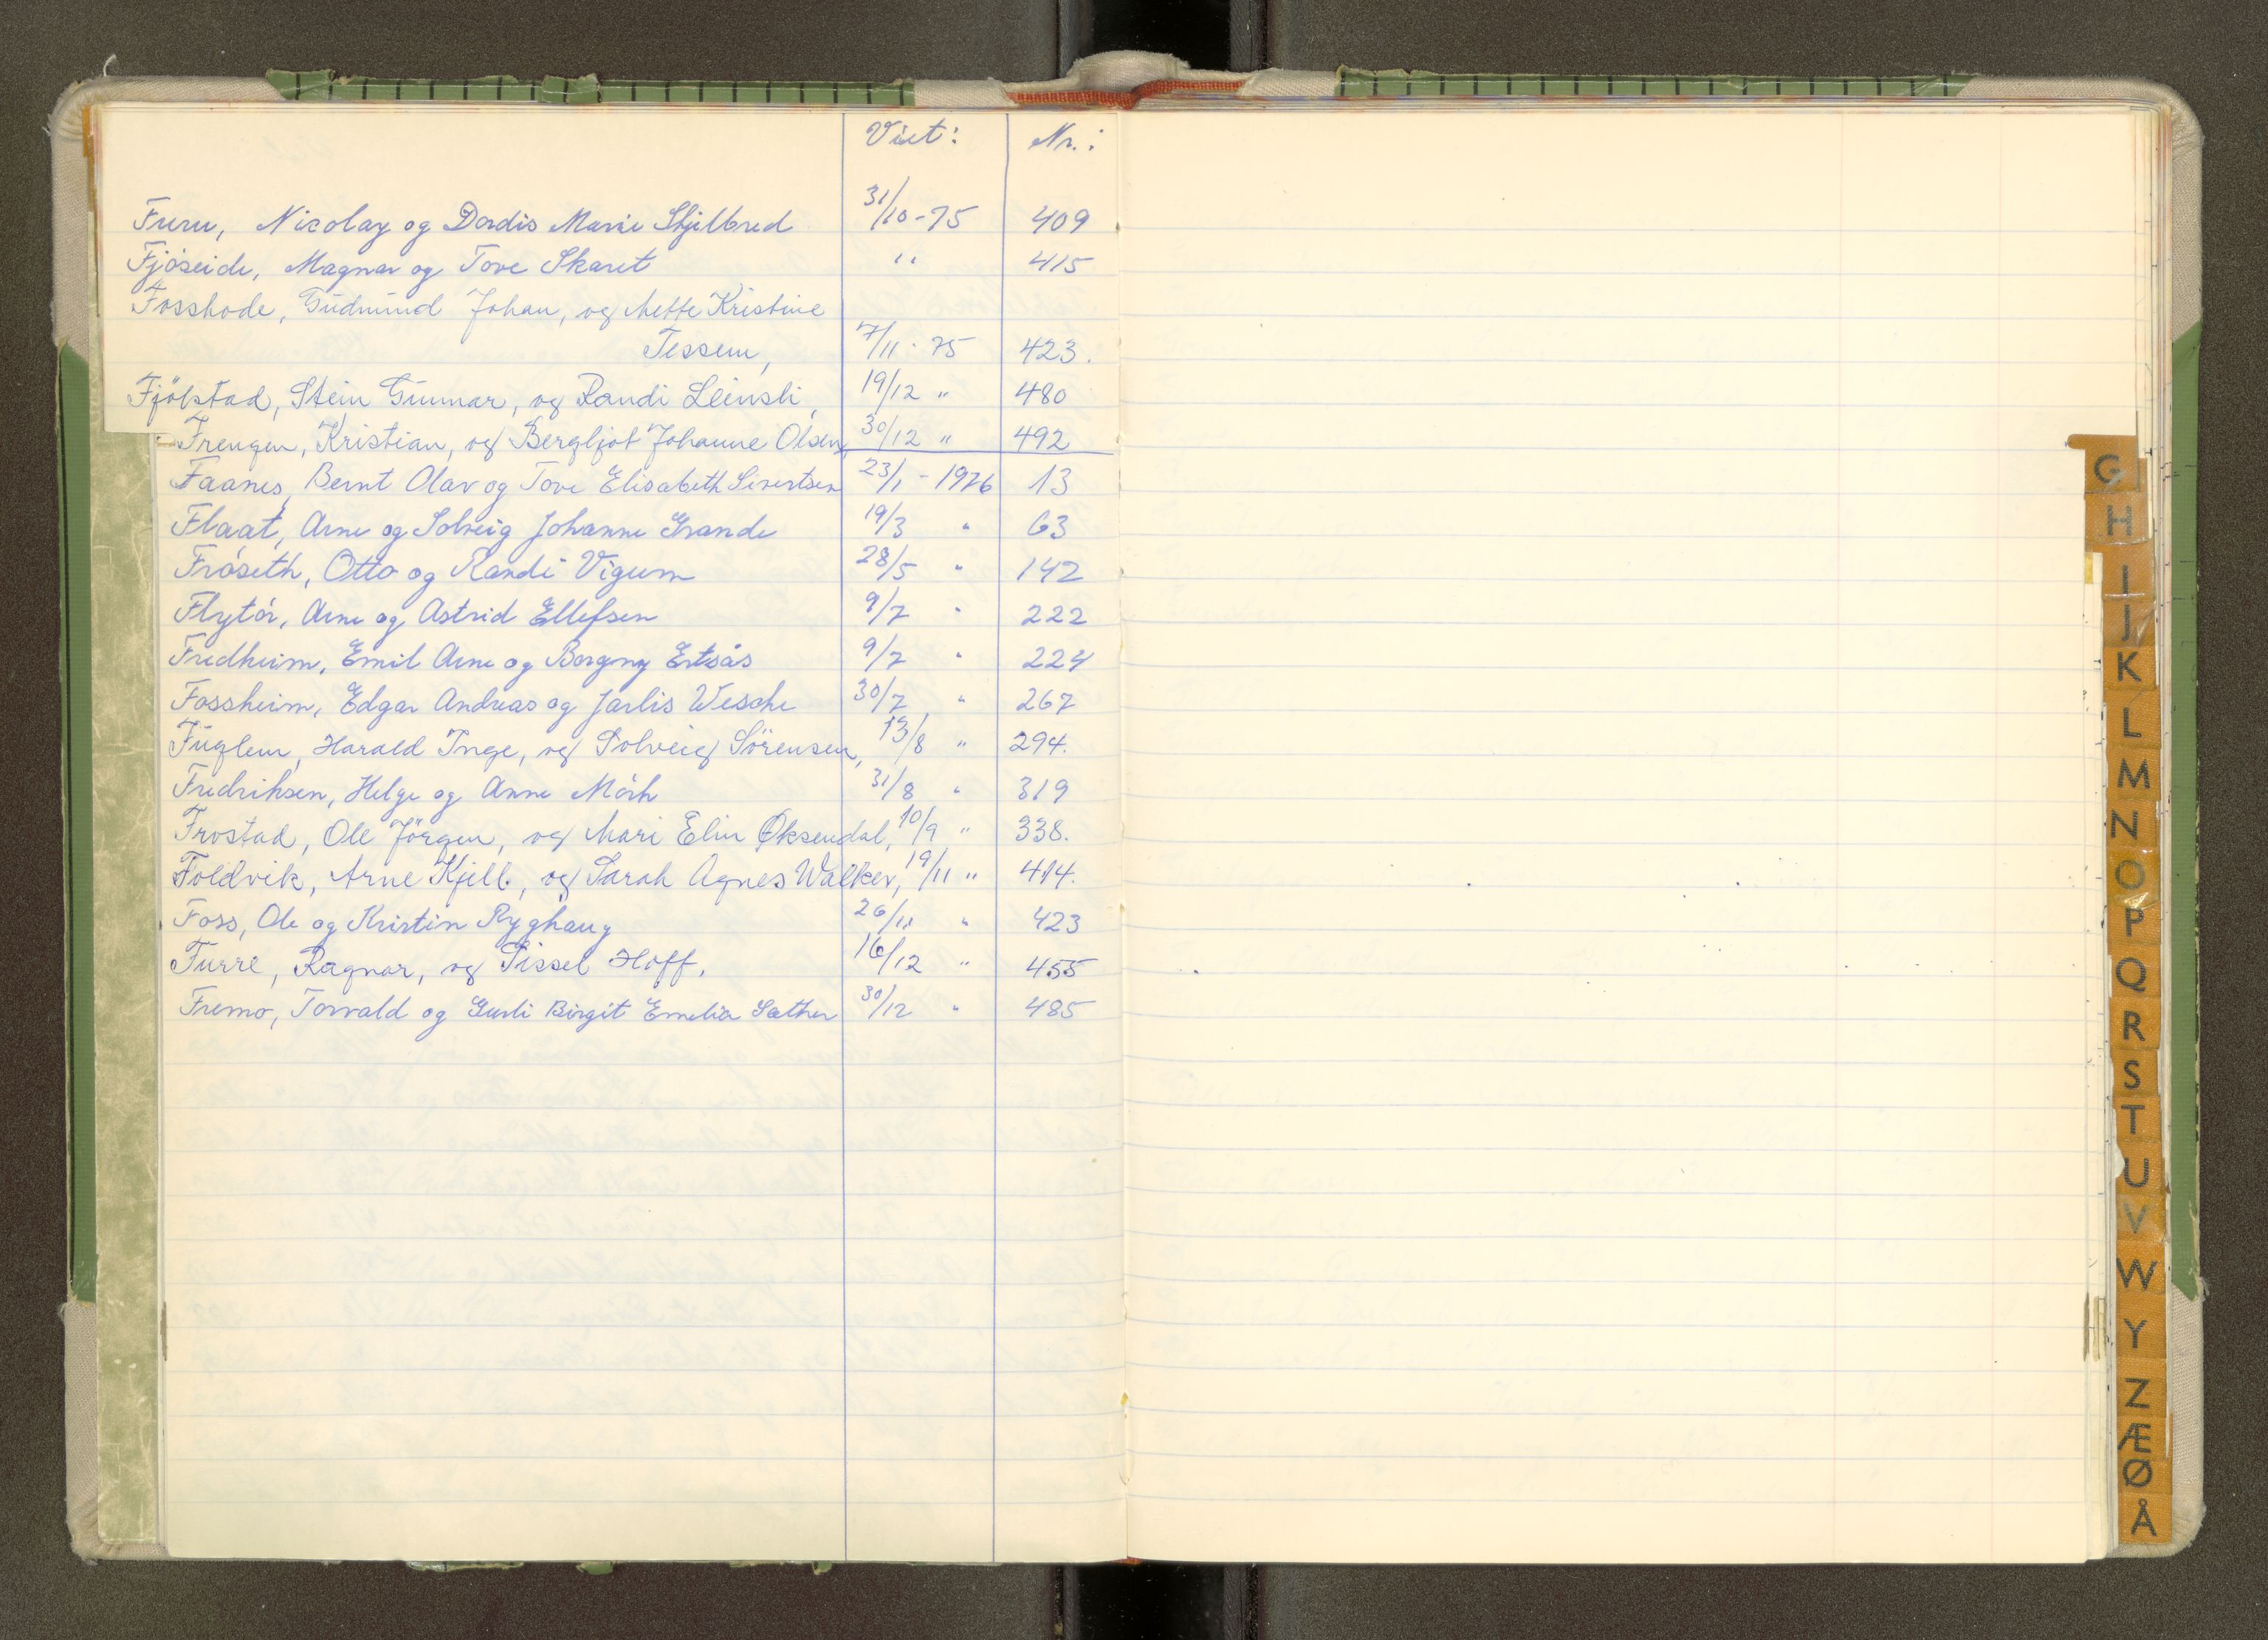 Viet: Nr.:
Furu, Nicolay og Dordis Marie Skjelbred 31/10-75 409
Fjøseide, Magnar og Tove Skaret " 415
Fosshode, Gudmund Johan, og Mette Kristine
Tessem, 7/11-75 423.
Fjölstad, Stein Gunnar, og Randi Leinsli, 19/12 " 480
Frengen, Kristian, og Bergljot Johanne Olsen, 30/12 " 492
Faanes, Bernt Olav og Tove Elisabeth Sivertsen 23/1-1976 13
Flaat, Arne og Solveig Johanne Grande 19/3 " 63
Fróseth, Otto og Randi Vigum 28/5 " 142
Flytór, Arne og Astrid Ellefsen 9/7 " 222
Fredheim, Emil Arne og Borgny Ertsås 9/7 " 224
Fossheim, Edgar Andreas og Jarlis Wesche 30/7 " 267
Fuglem, Harald Inge, og Solveig Sörensen, 13/8 " 294.
Fredriksen, Helge og Anne Mórk 31/8 " 319
Frostad, Ole Jörgen, og Mari Elin Øksendal, 10/9 " 338.
Foldvik, Arne Kjell, og Sarah Agnes Walker, 19/11 " 414.
Foss, Ole og Kristin Ryghaug 26/11 " 423
Furre, Ragnar, og Sissel Hoff. 16/12 " 455
Fremo, Torvald og Gurli Birgit Emelia Sæther 30/12 " 485
G
H
I
J
K
L
M
N
O
P
Q
R
S
T
U
V
W
Y
Z
Æ
Ø
Å